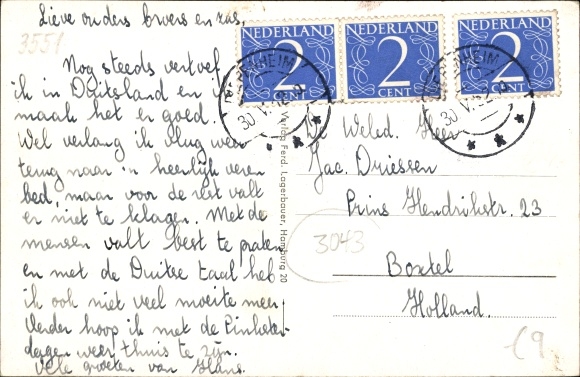 Lieve ouders broers en zus,
3551
Nog steeds vertoef
ik in Duitsland en
maak het er goed.
Wel verlang ik vlug weer
terug naar m'n heerlijk veren
bed, maar voor de rest valt
er niet te klagen. Met de
mensen valt best te praten
en met de Duitse taal heb
ik ook niet veel moeite meer
Verder hoop ik met de Pinkster-
dagen weer thuis te zijn.
Vele groeten van Hans.
Verlag Ferd. Lagerbauer, Hamburg 20
NEDERLAND
2
CENT
NEDERLAND
2
CENT
NEDERLAND
2
CENT
De Weled. Heer
Jac. Driessen
Prins Hendrikstr. 23
3043
Boxtel
Holland.